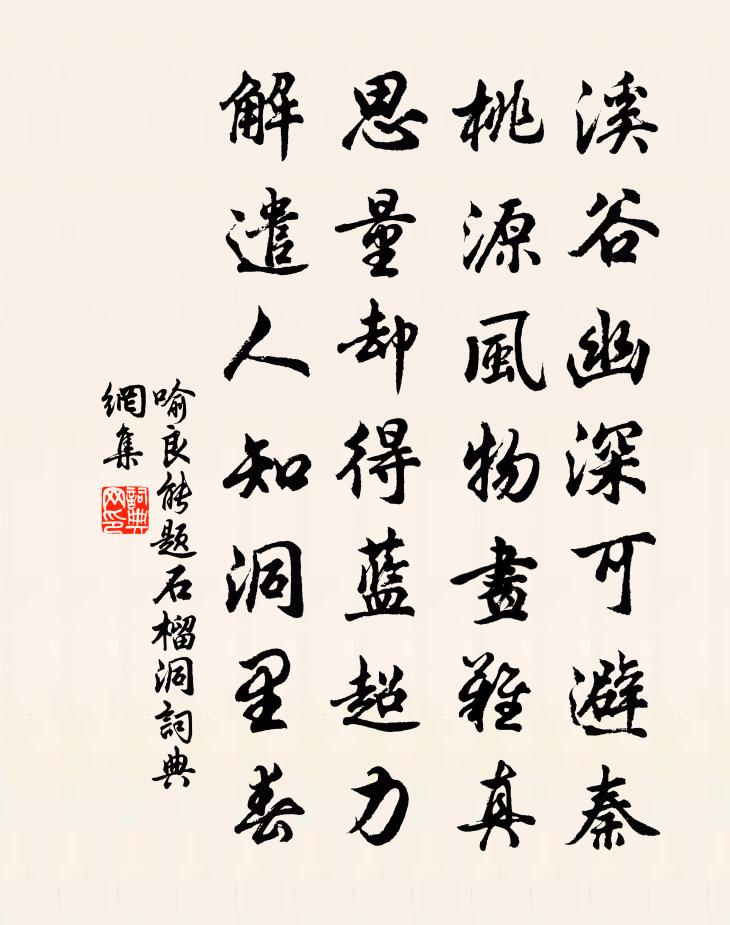 溪谷幽深可避秦
桃源風物畫難真
思量却得藍超力
解遣人知洞里春
喻良能题石榴洞詞典
網集
詞典
网印